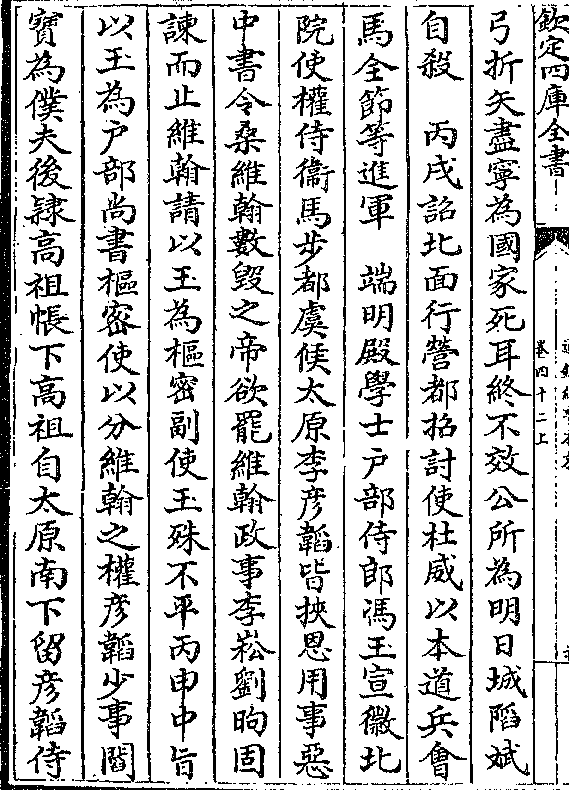 欽定四庫全書
卷四十二上
弓折矢盡寧為國家死耳終不效公所為明日城䧟斌
自殺　丙戌詔北面行營都招討使杜威以本道兵會
馬全節等進軍　端明殿學士户部侍郎馮玉宣徽北
院使權侍衞馬步都虞候太原李彦韜皆挾恩用事惡
中書令桑維翰數毁之帝欲罷維翰政事李崧劉昫固
諫而止維翰請以玉為樞密副使玉殊不平丙申中旨
以玉為户部尚書樞密使以分維翰之權彦韜少事閻
寶為僕夫後隸髙祖帳下髙祖自太原南下留彦韜侍